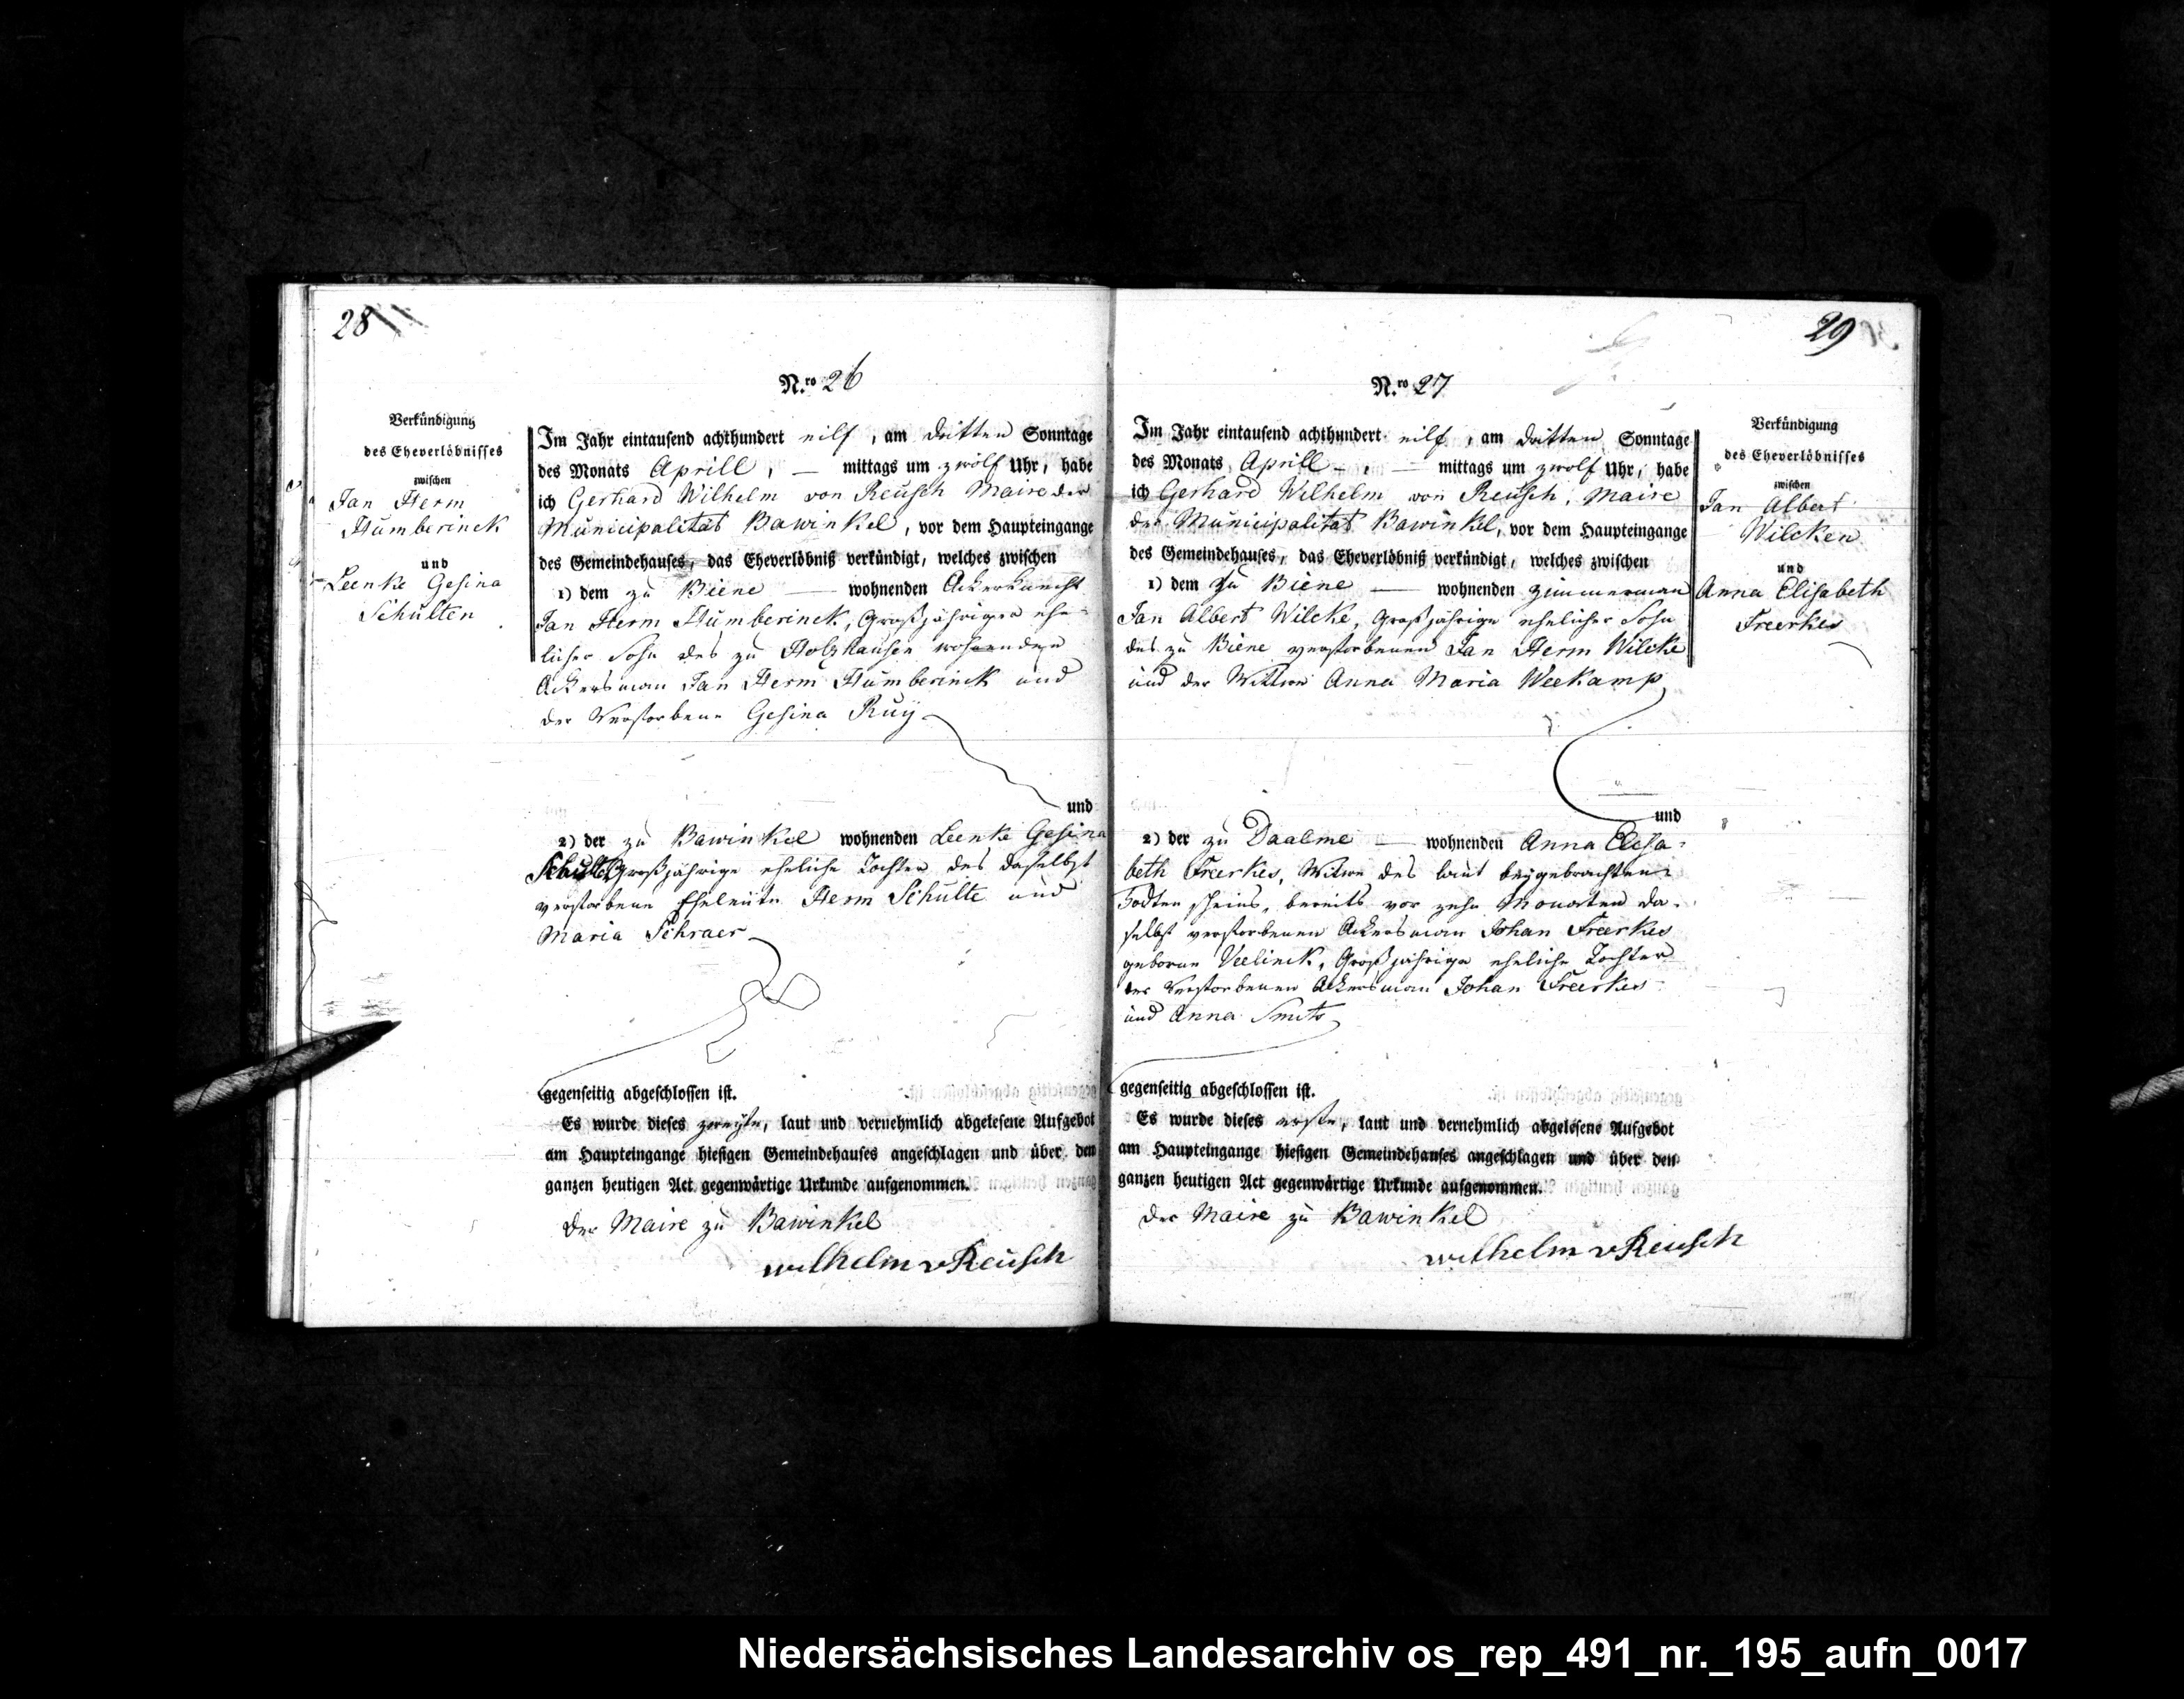 28
N.ro 26
Verkündigung
des Eheverlöbnisses
zwischen
Jan Herm
Humberinck
und
Leenke Gesina
Schulten
Im Jahr eintausend achthundert eilf, am dritten Sonntage
des Monats Aprill, — mittags um zwölf Uhr, habe
ich Gerhard Wilhelm von Reusch Maire der
Municipalität Bawinkel, vor dem Haupteingange
des Gemeindehauses, das Eheverlöbniß verkündigt, welches zwischen
1) dem zu Biene — wohnenden Ackerknecht
Jan Herm Humberinck, Großjähriger ehe-
licher Sohn des zu Holzhausen wohnenden
Ackersman Jan Herm Humberinck und
der Verstorbene Gesina Ruÿ
und
2) der zu Bawinkel wohnenden Leenke Gesina
Schulte Großjährige eheliche Tochter des daselbst
verstorbene Eheleüte Herm Schulte und
Maria Schraer
gegenseitig abgeschlossen ist.
Es wurde dieses zweyte, laut und vernehmlich abgelesene Aufgebot
am Haupteingange hiesigen Gemeindehauses angeschlagen und über den
ganzen heutigen Act gegenwärtige Urkunde aufgenommen.
Der Maire zu Bawinkel
Wilhelm v Reusch
29
N.ro 27
Im Jahr eintausend achthundert eilf, am dritten Sonntage
des Monats Aprill —, — mittags um zwolf Uhr, habe
ich Gerhard Wilhelm von Reusch, Maire
der Municipalität Bawinkel, vor dem Haupteingange
des Gemeindehauses, das Eheverlöbniß verkündigt, welches zwischen
1) dem zu Biene — wohnenden Zimmerman
Jan Albert Wilcke, Großjährige ehelicher Sohn
des zu Biene verstorbenen Jan Herm Wilcke
und der Wittwe Anna Maria Weekamp
und
2) der zu Daalme — wohnenden Anna Elisa-
beth Freerkes, Witwe des laut beygebrachten
Todten scheins, bereits vor zehn Monaten da-
selbst verstorbenen Ackersman Johan Freerkes
geborne Veelinck, Großjährige eheliche Tochter
des Verstorbenen Ackersman Johan Freerkes
und Anna Smits
gegenseitig abgeschlossen ist.
Es wurde dieses erste, laut und vernehmlich abgelesene Aufgebot
am Haupteingange hiesigen Gemeindehauses angeschlagen und über den
ganzen heutigen Act gegenwärtige Urkunde aufgenommen.
Der Maire zu Bawinkel
Wilhelm v Reusch
Verkündigung
des Eheverlöbnisses
zwischen
Jan Albert
Wilcken
und
Anna Elisabeth
Freerkes
Niedersächsisches Landesarchiv os_rep_491_nr._195_aufn_0017